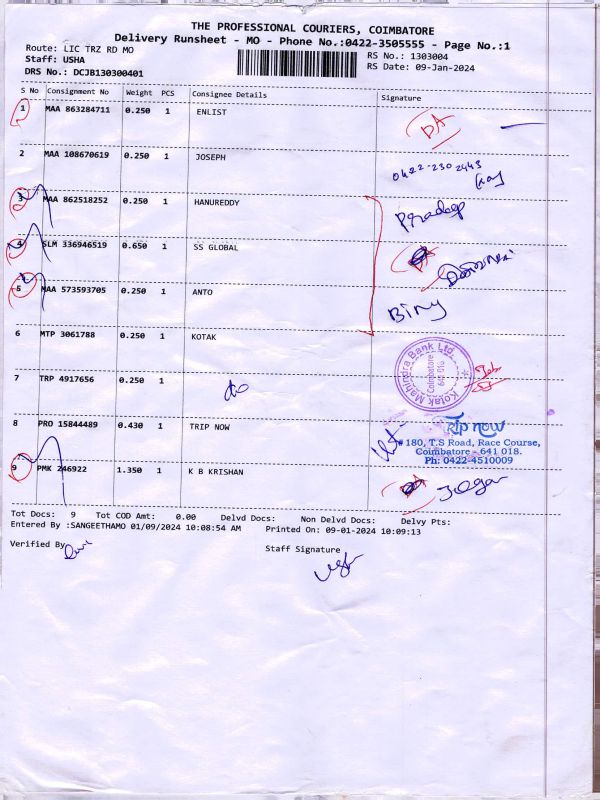 THE PROFESSIONAL COURIERS, COIMBATORE
Delivery Runsheet - MO - Phone No.:0422-3505555 - Page No.:1
Route: LIC TRZ RD MO
RS No.: 1303004
Staff: USHA
RS Date: 09-Jan-2024
DRS No.: DCJB130300401
S No Consignment No Weight PCS Consignee Details Signature
1 MAA 863284711 0.250 1 ENLIST DA
2 MAA 108670619 0.250 1 JOSEPH 0422-2302443
3 MAA 862518252 0.250 1 HANUREDDY Pradeep
4 SLM 336946519 0.650 1 SS GLOBAL
5 MAA 573593705 0.250 1 ANTO Biny
6 MTP 3061788 0.250 1 KOTAK
Kotak Mahindra Bank Ltd.
Coimbatore
641 018
7 TRP 4917656 0.250 1 do
8 PRO 15844489 0.430 1 TRIP NOW
Trip now
# 180, T.S Road, Race Course,
Coimbatore - 641 018.
Ph: 0422-4510009
9 PMK 246922 1.350 1 K B KRISHAN
Tot Docs: 9 Tot COD Amt: 0.00 Delvd Docs: Non Delvd Docs: Delvy Pts:
Entered By :SANGEETHAMO 01/09/2024 10:08:54 AM Printed On: 09-01-2024 10:09:13
Verified By
Staff Signature